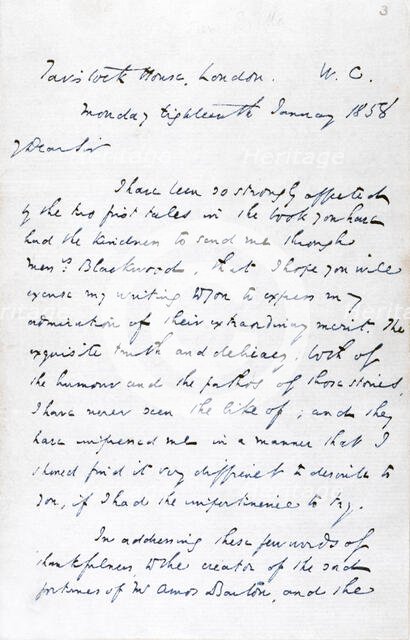 3
Tavistock House, London. W. C.
Monday Eighteenth January 1858
My Dear Sir
I have been so strongly affected
by the two first tales in the book you have
had the kindness to send me through
Messrs. Blackwood, that I hope you will
excuse my writing to you to express my
admiration of their extraordinary merit. The
exquisite truth and delicacy, both of
the humour and the pathos of those stories,
I have never seen the like of; and they
have impressed me in a manner that I
should find it very difficult to describe to
you, if I had the impertinence to try.
In addressing these few words of
thankfulness, to the creator of the sad
fortunes of Mr Amos Barton, and the
Heritage
Heritage